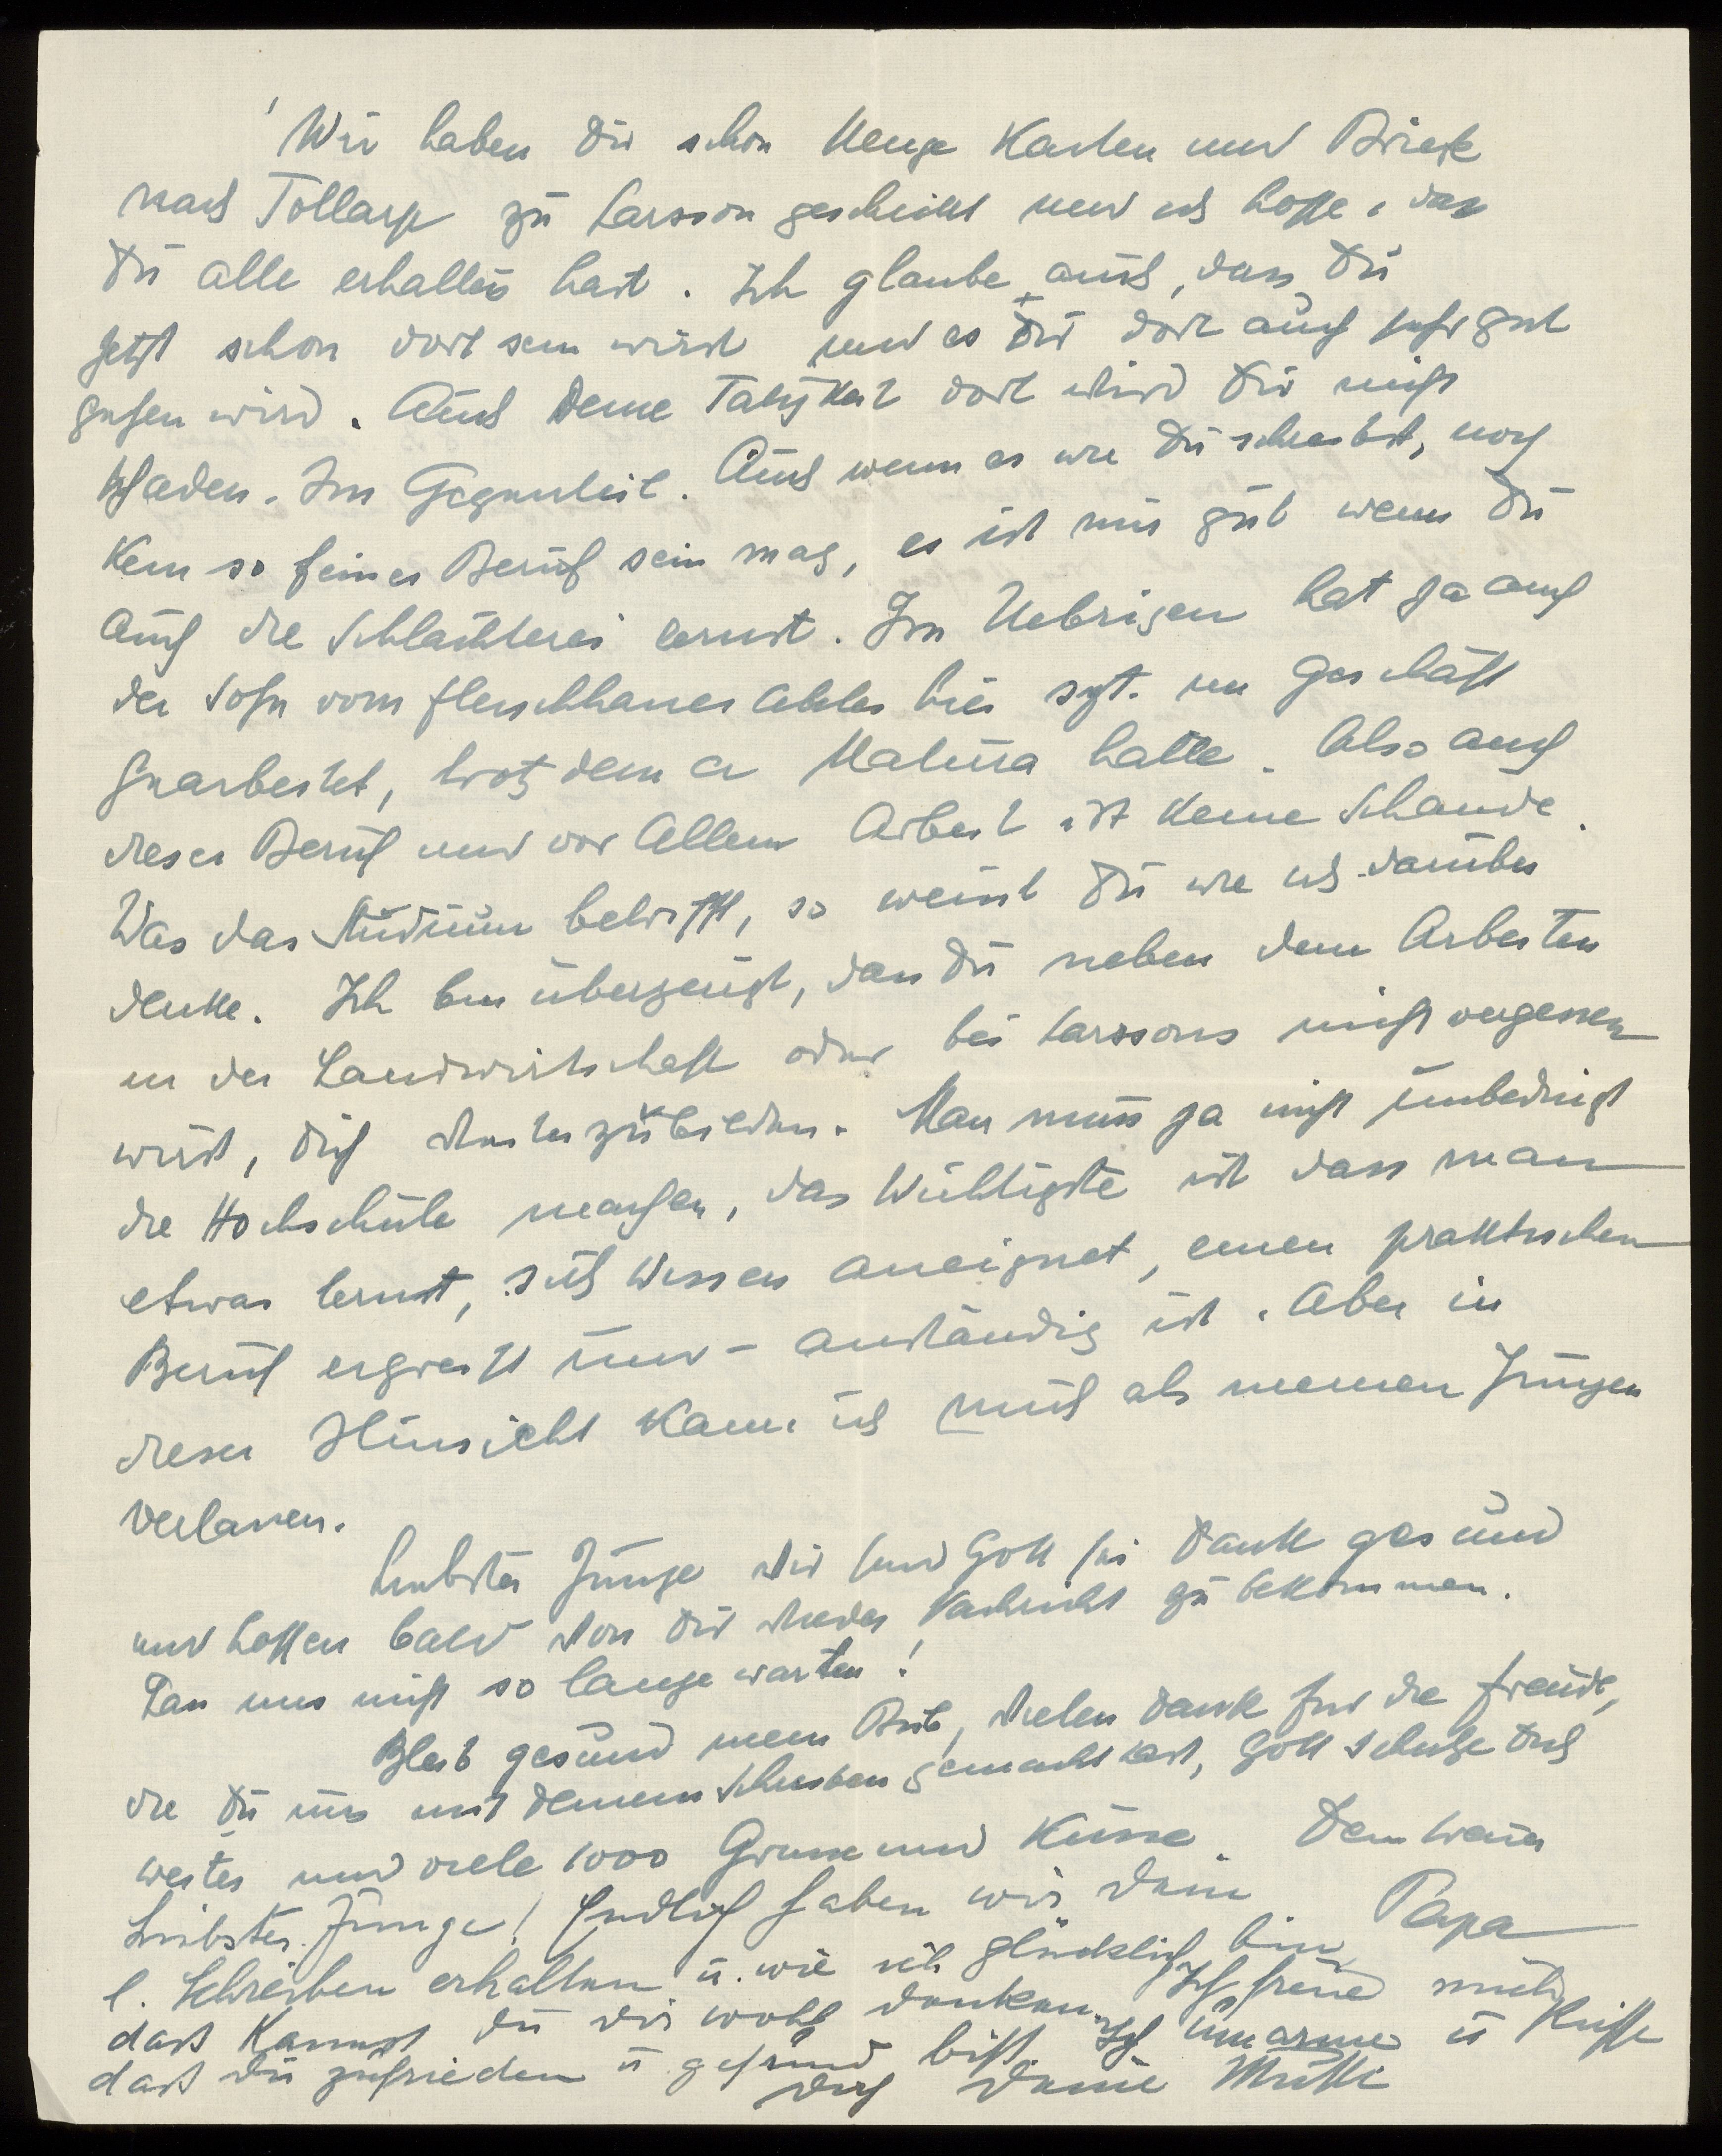 Wir haben Dir schon Menge Karten und Briefe
nach Tollarp zu Larsson geschickt und ich hoffe, dass
Du alle erhalten hast. Ich glaube auch, dass Du
jetzt schon dort sein wirst und es Dir dort auch sehr gut
gehen wird. Auch Deine Tätigkeit dort wird Dir nicht
schaden. Im Gegenteil. Auch wenn es wie Du schreibst, noch
kein so feiner Beruf sein mag, es ist nur gut wenn Du
auch die Schlachterei lernst. Im Uebrigen hat ja auch
der Sohn vom Fleischhauer Abeles hier szt. im Geschäft
gearbeitet, trotzdem er Matura hatte. Also auch
dieser Beruf und vor Allem Arbeit ist keine Schande.
Was das Studium betrifft, so weisst Du wie ich darüber
denke. Ich bin überzeugt, dass Du neben dem Arbeiten
in der Landwirtschaft oder bei Larssons nicht vergessen
wirst, Dich weiterzubilden. Man muss ja nicht unbedingt
die Hochschule machen, das Wichtigste ist dass man
etwas lernt, sich Wissen aneignet, einen praktischen
Beruf ergreift und - anständig ist. Aber in
dieser Hinsicht kann ich mich als meinen Jungen
verlassen.
Liebster Junge wir sind Gott sei Dank gesund
und hoffen bald von Dir wieder Nachricht zu bekommen.
Lass uns nicht so lange warten!
Bleib gesund mein Bub, vielen Dank für die Freude,
die Du uns mit Deinem Schreiben gemacht hast, Gott schütze Dich
weiter und viele 1000 Grüsse und Küsse. Dein treuer
Papa
Liebster Junge! Endlich haben wir Dein
l. Schreiben erhalten u. wie ich glücklich bin,
das kannst Du Dir wohl denken. Ich freue mich
daß Du zufrieden u gesund bist. Ich umarme u küsse
Dich Deine Mutti